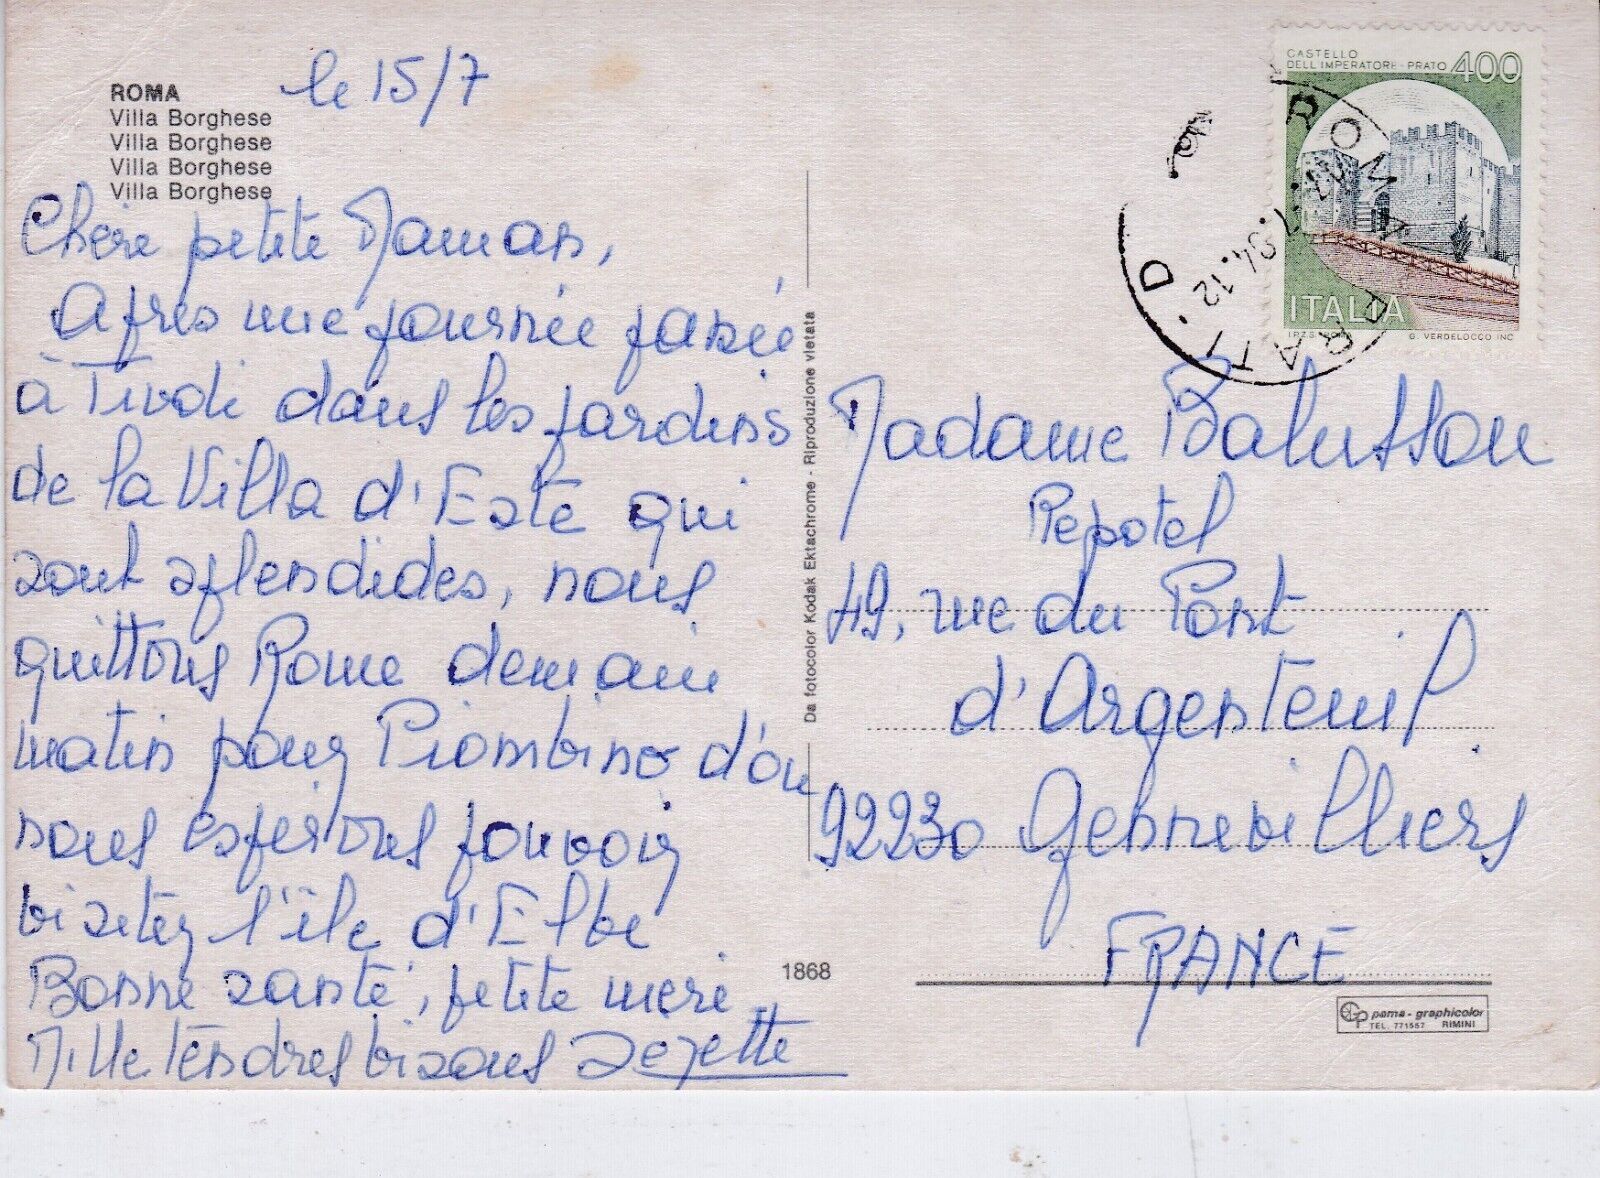 ROMA
Villa Borghese
Villa Borghese
Villa Borghese
Villa Borghese
le 15/7
Chère petite Maman,
Après une journée passée
à Tivoli dans les jardins
de la Villa d'Este qui
sont splendides, nous
quittons Rome demain
matin pour Piombino d'où
nous espérons pouvoir
visiter l'île d'Elbe
Bonne santé, petite mère
Mille tendres bisous
Da fotocolor Kodak Ektachrome - Riproduzione vietata
1868
CASTELLO
DELL'IMPERATORE - PRATO 400
ITALIA
G. VERDELOCCO INC
ROMA PRATI - D
Madame
Repotel
49, rue du Pont
d'Argenteuil
92230 Gennevilliers
FRANCE
GP pama - graphicolor
TEL. 771557 RIMINI